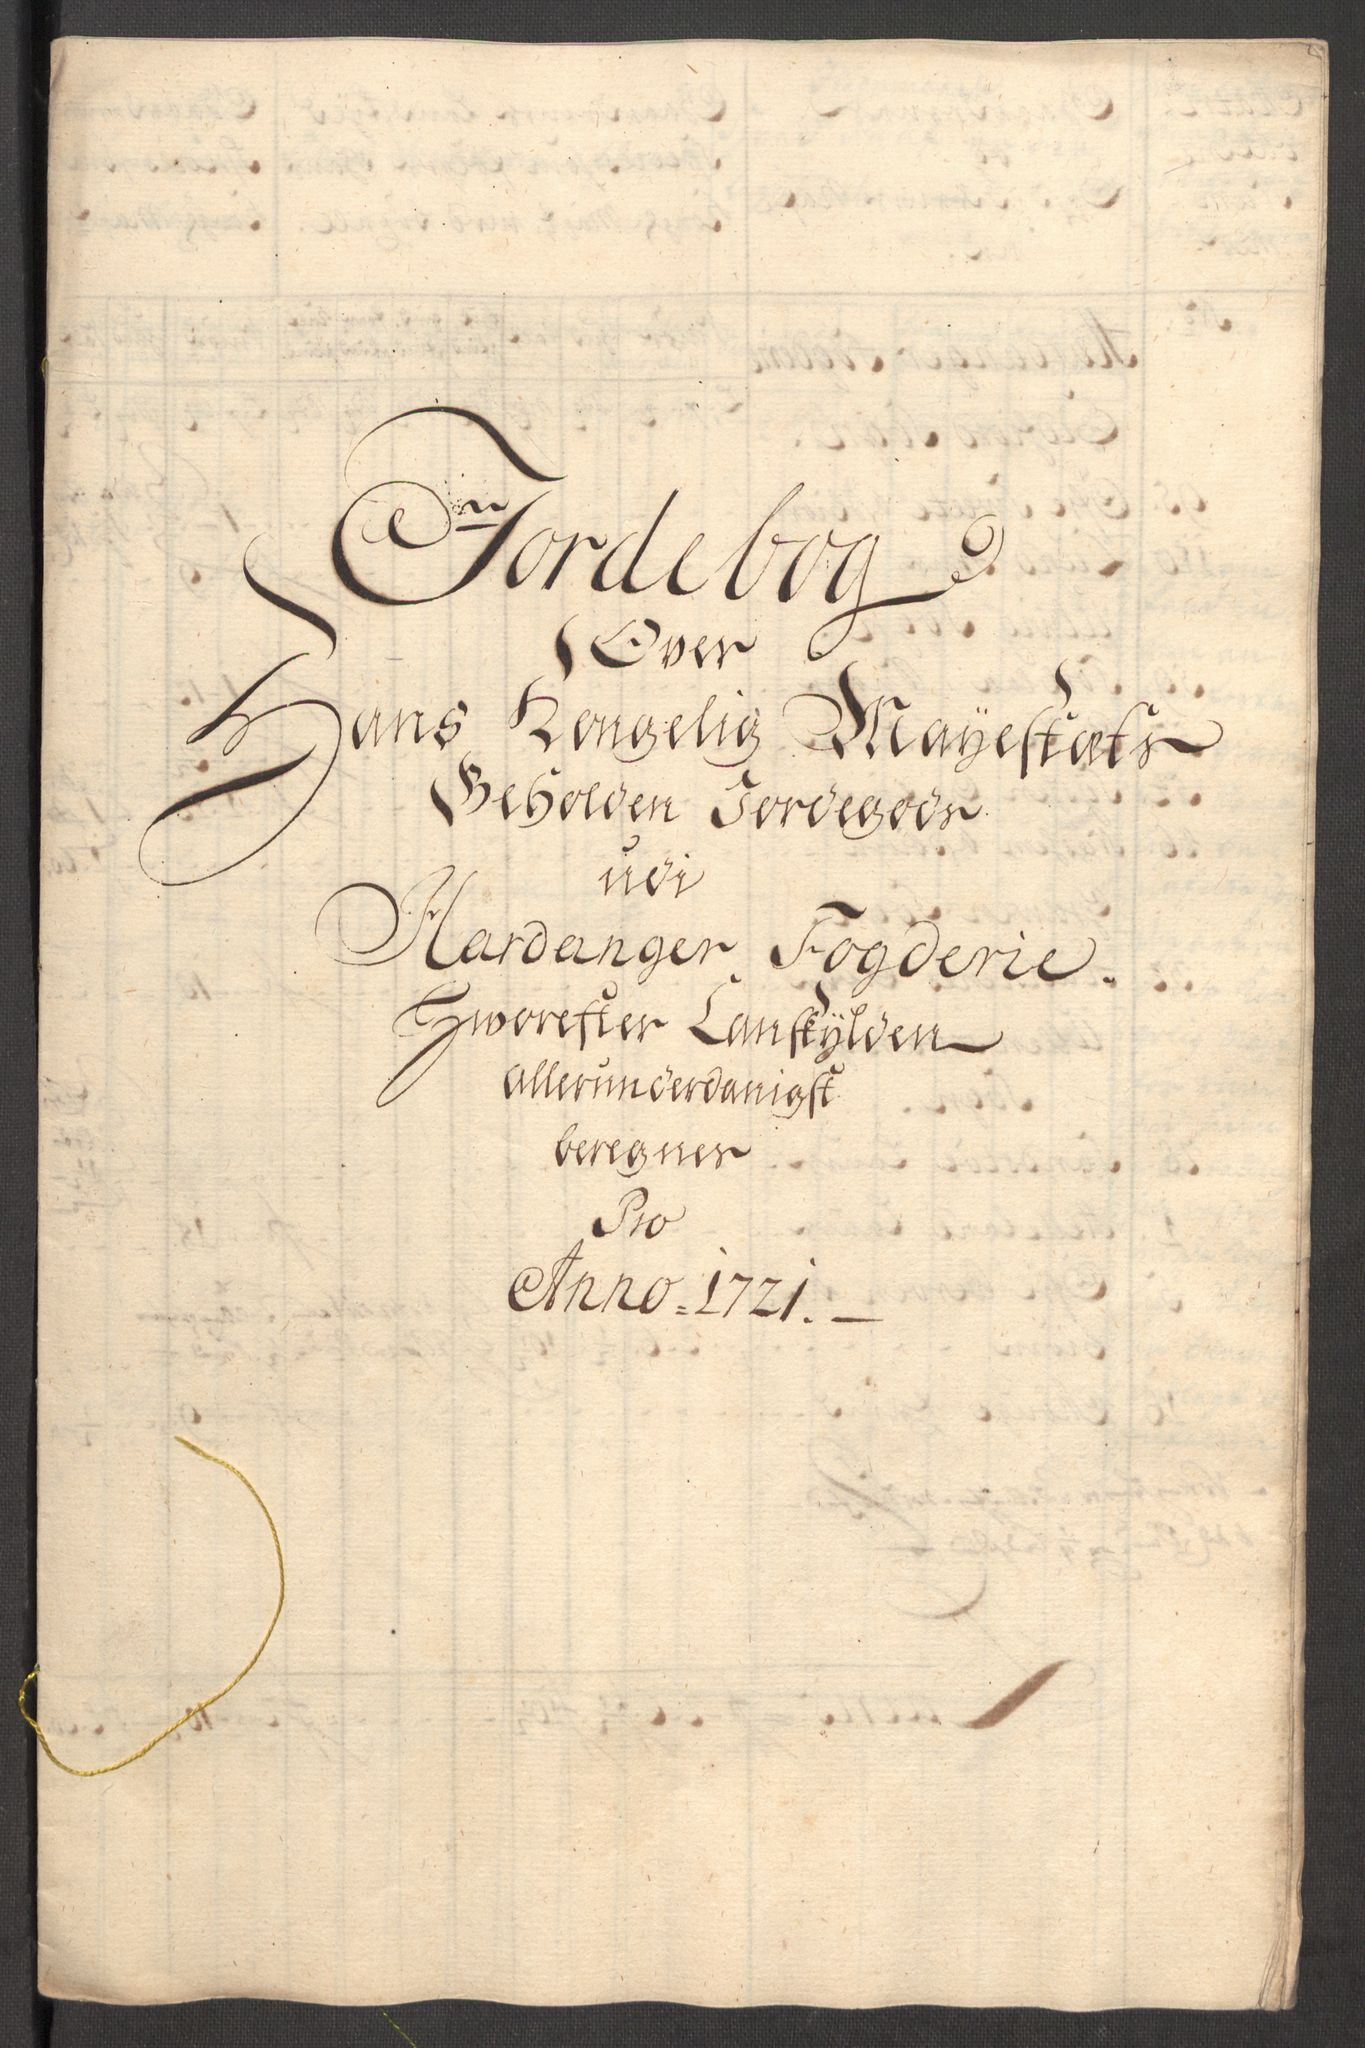 En Jordebog
Over
Hans Kongelig Mayestæts
Beholden Jordegods
udi
Hardanger Fogderie.
Hworefter Lanskÿlden
allerunderdanigst
beregnes
Pro
Anno = 1721. —